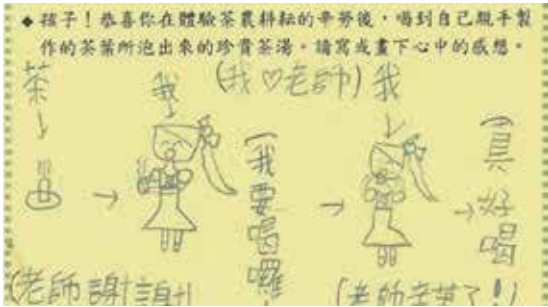 ◆孩子！恭喜你在體驗茶農耕耘的辛勞後，喝到自己親手製
作的茶葉所泡出來的珍貴茶湯。請寫或畫下心中的感想。
茶
我
(我♡老師)
我
(我要喝囉！
(真好喝
(老師謝謝
(老師辛苦了！)